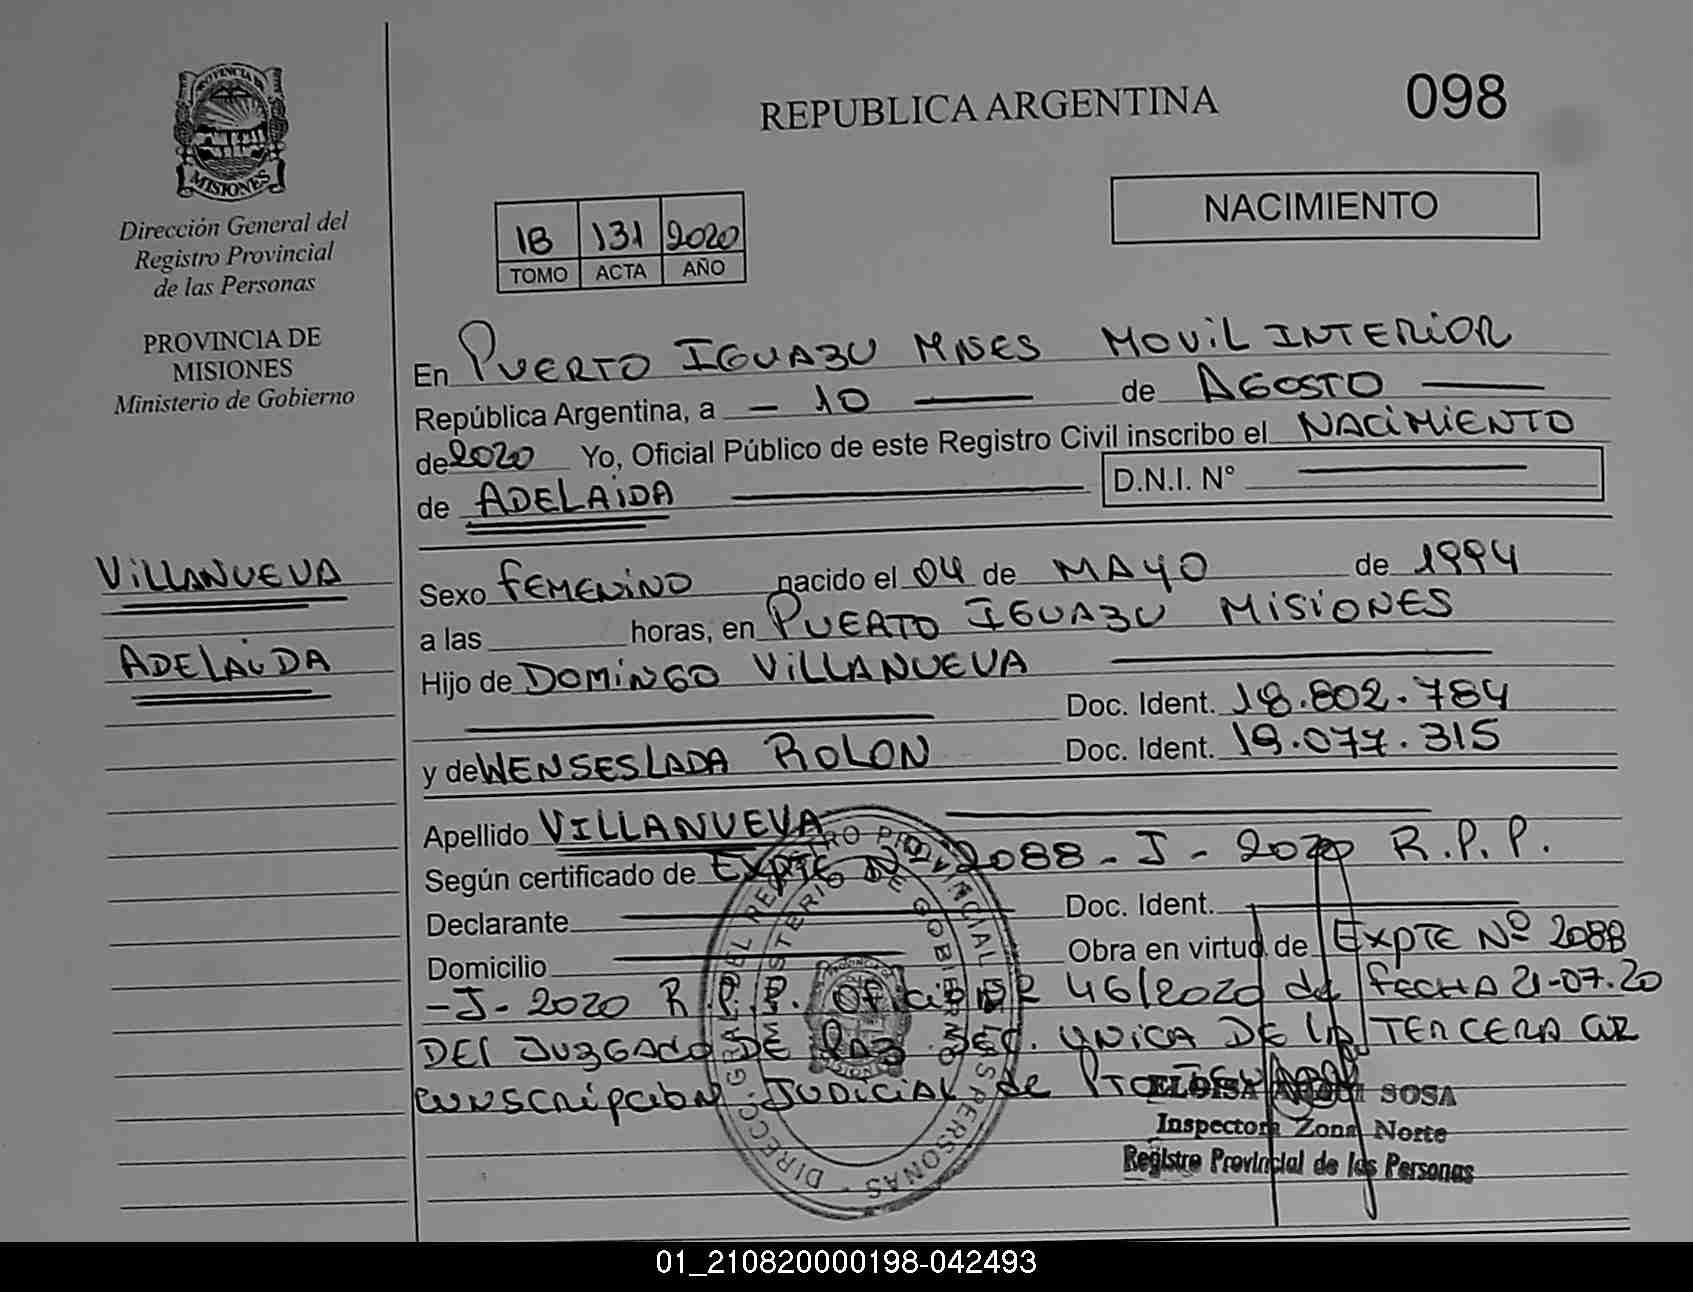 PROVINCIA DE
MISIONES
Dirección General del
Registro Provincial
de las Personas
PROVINCIA DE
MISIONES
Ministerio de Gobierno
VILLANUEVA
ADELAIDA
REPUBLICA ARGENTINA
098
NACIMIENTO
1B 131 2020
TOMO ACTA AÑO
En PUERTO IGUAZU MNES MOVIL INTERIOR
República Argentina, a - 10 de AGOSTO
de 2020 Yo, Oficial Público de este Registro Civil inscribo el NACIMIENTO
de ADELAIDA D.N.I. N°
Sexo FEMENINO nacido el 04 de MAYO de 1994
a las horas, en PUERTO IGUAZU MISIONES
Hijo de DOMINGO VILLANUEVA
Doc. Ident. 18.802.784
y de WENSESLADA ROLON Doc. Ident. 19.077.315
Apellido VILLANUEVA
Según certificado de EXPTE Nº 2088 - J - 2020 R.P.P.
Declarante Doc. Ident.
Domicilio Obra en virtud de EXPTE Nº 2088
-J- 2020 R.P.P. OFICIO Nº 46/2020 de FECHA 21-07.20
DEL JUZGADO DE PAZ SEC. UNICA DE LA TERCERA CIR
CUNSCRIPCION JUDICIAL de
SOSA
Inspectora Zona Norte
Registro Provincial de las Personas
DIRECC. GRAL DEL REGISTRO PROVINCIAL DE LAS PERSONAS
MINISTERIO DE GOBIERNO
01_210820000198-042493